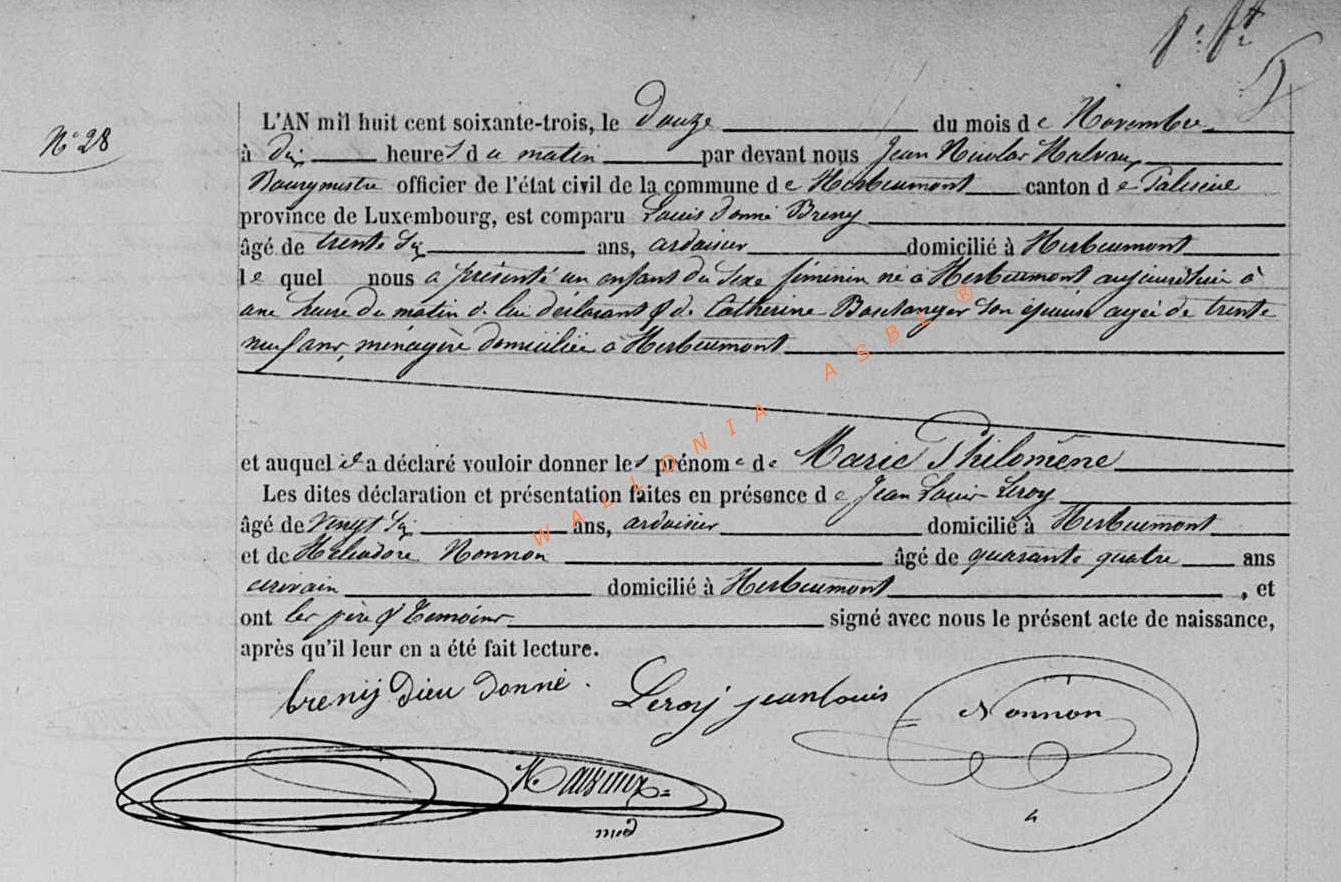 N° 28
L'AN mil huit cent soixante-trois, le Douze du mois de Novembre
à dix heures du matin par devant nous Jean Nicolas
Bourgmestre officier de l'état civil de la commune de Herbeumont canton de Paliseul
province de Luxembourg, est comparu Louis donné Breny
âgé de trente six ans, ardoisier domicilié à Herbeumont
le quel nous a présenté un enfant du sexe féminin né à Herbeumont aujourd'hui à
une heure du matin de lui déclarant & de Catherine Boulanger son épouse agée de trente
neuf ans, ménagère domiciliée à Herbeumont
et auquel il a déclaré vouloir donner les prénoms de Marie Philomène
Les dites déclaration et présentation faites en présence de Jean Louis Leroy
âgé de vingt six ans, ardoisier domicilié à Herbeumont
et de Héliodore Nonnon âgé de quarante quatre ans
écrivain domicilié à Herbeumont, et
ont les père & témoins signé avec nous le présent acte de naissance,
après qu'il leur en a été fait lecture.
breny Dieu donné. Leroy jean louis Nonnon
WALLONIA ASBL ®